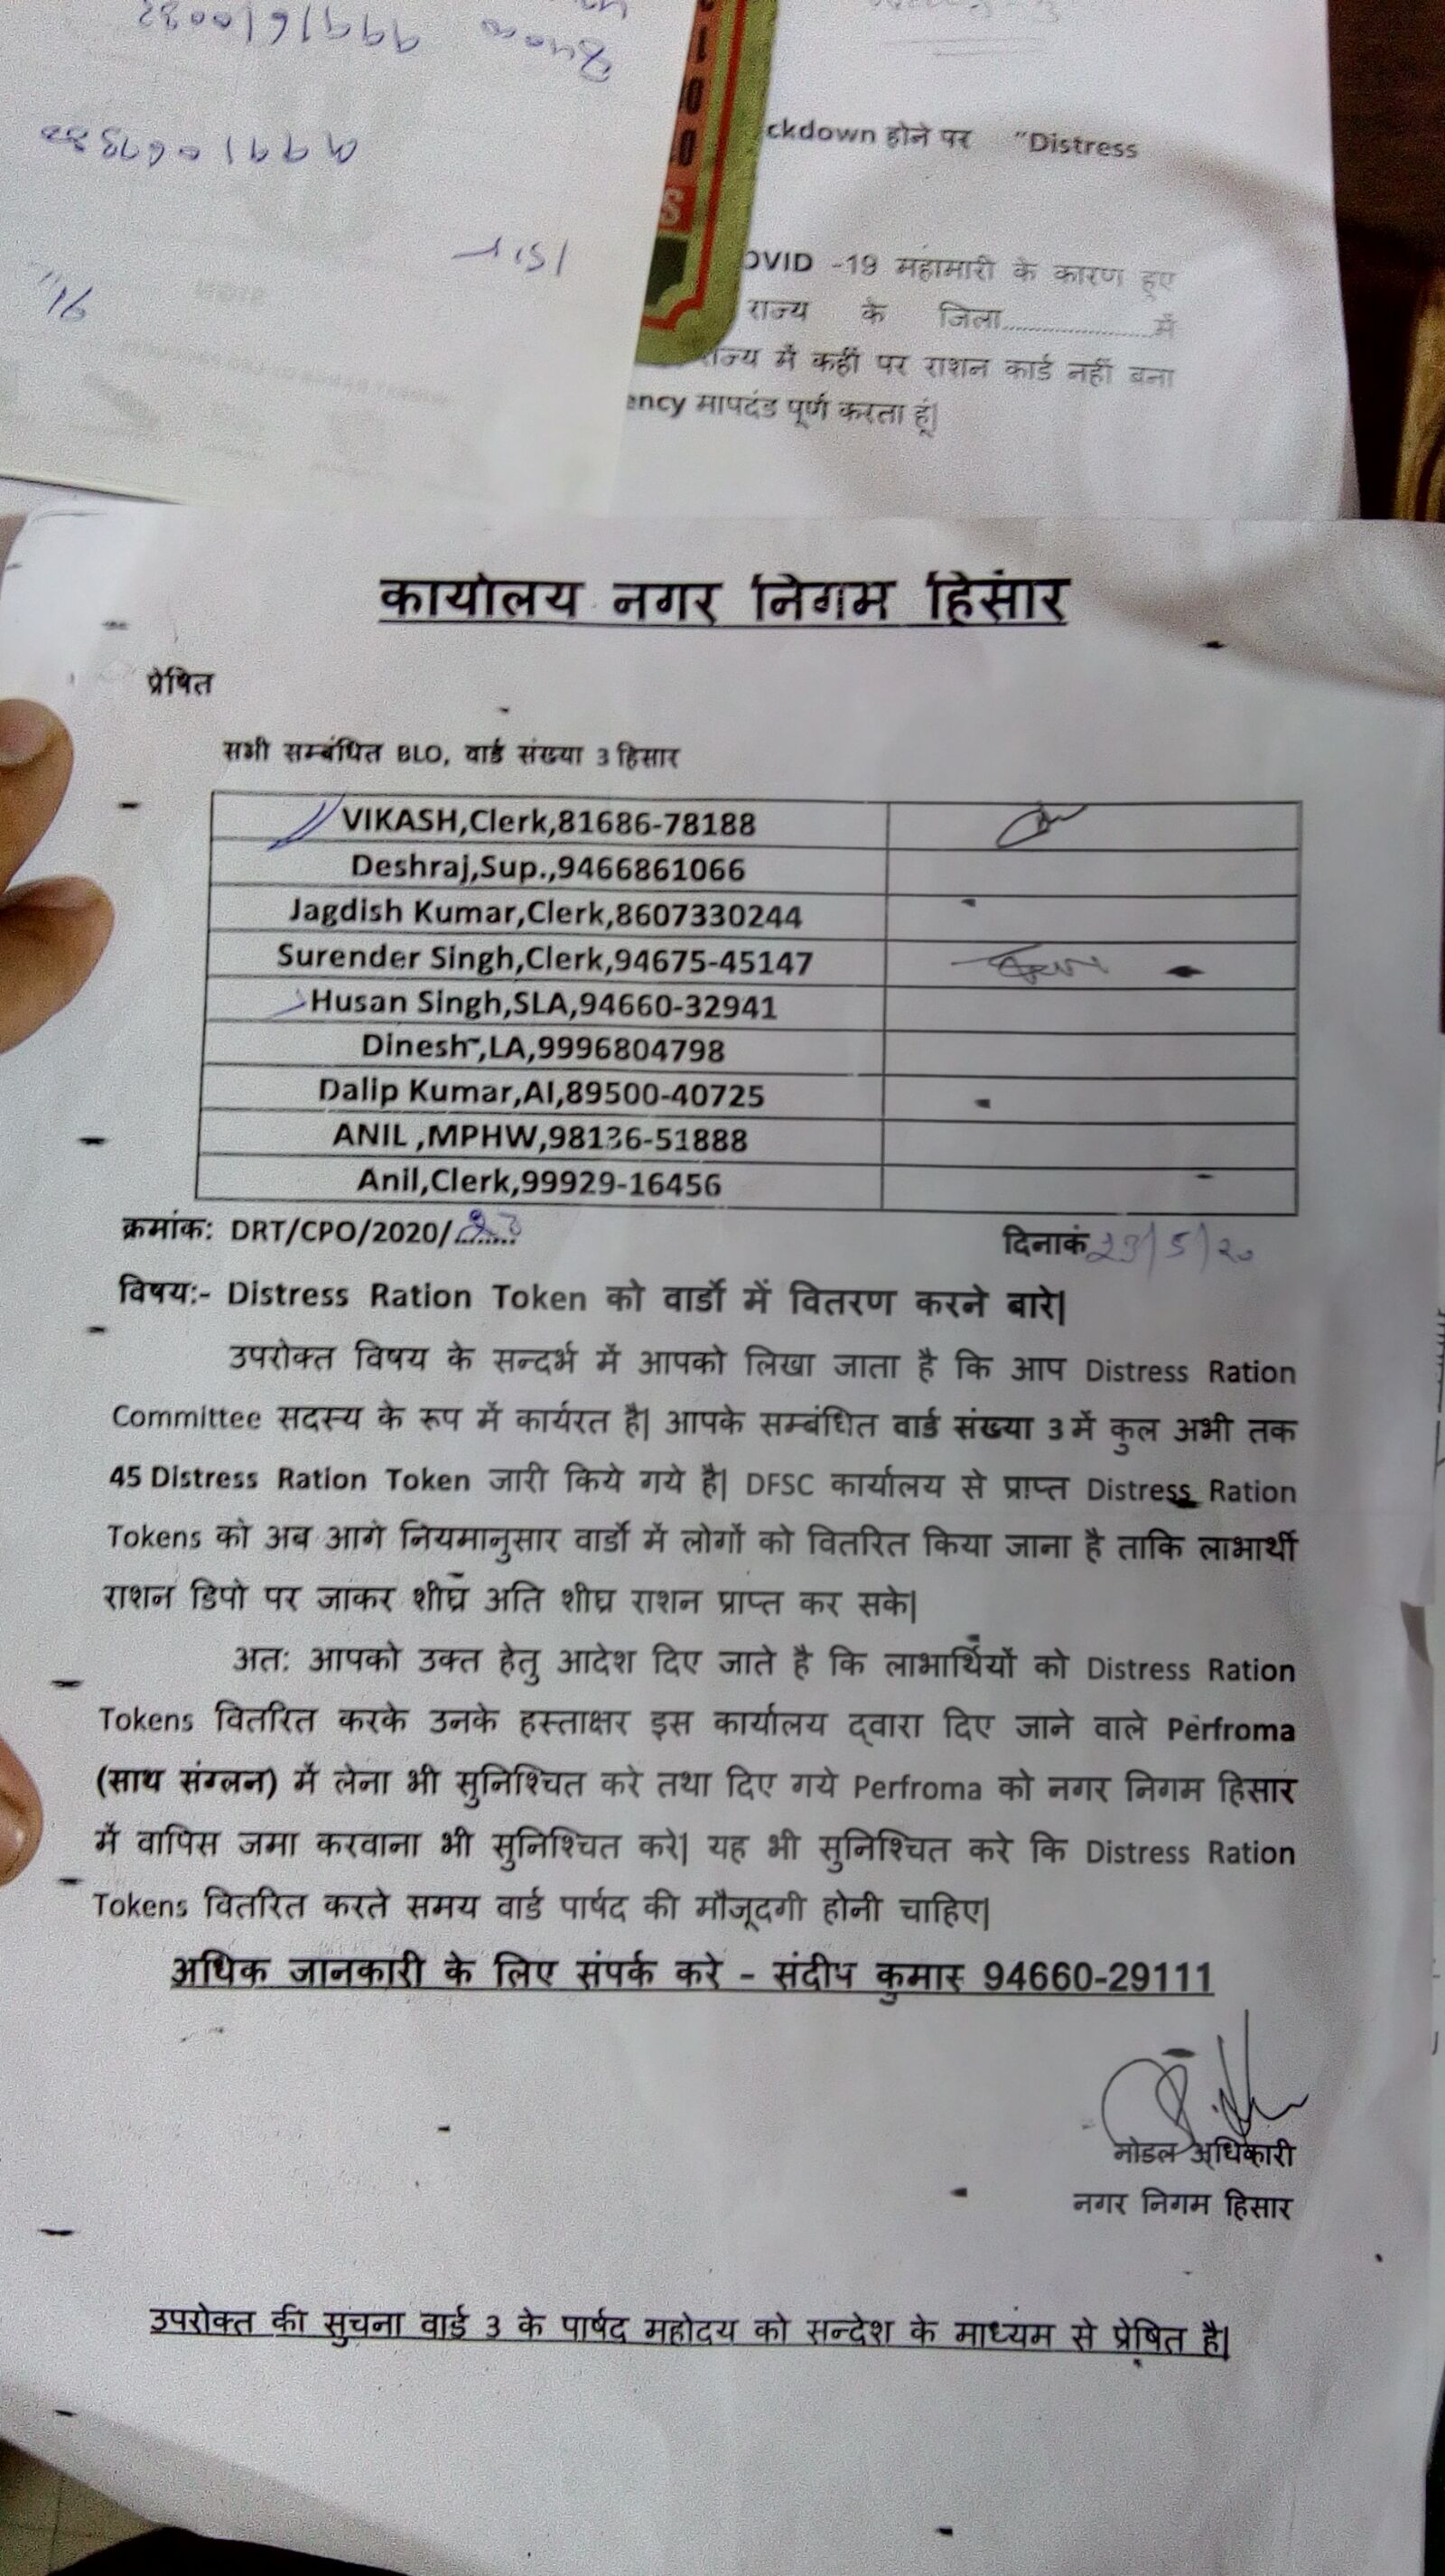 9991610032
9991067322
ckdown होने पर "Distress
OVID -19 महामारी के कारण हुए
राज्य के जिला....................में
राज्य में कहीं पर राशन कार्ड नहीं बना
ency मापदंड पूर्ण करता हूं|
कार्यालय नगर निगम हिसार
प्रेषित
सभी सम्बंधित BLO, वार्ड संख्या 3 हिसार
VIKASH,Clerk,81686-78188
Deshraj,Sup.,9466861066
Jagdish Kumar,Clerk,8607330244
Surender Singh,Clerk,94675-45147
Husan Singh,SLA,94660-32941
Dinesh,LA,9996804798
Dalip Kumar,AI,89500-40725
ANIL ,MPHW,98136-51888
Anil,Clerk,99929-16456
क्रमांक: DRT/CPO/2020/........ दिनाकं 29/5/20
विषय:- Distress Ration Token को वार्डो में वितरण करने बारे|
उपरोक्त विषय के सन्दर्भ में आपको लिखा जाता है कि आप Distress Ration
Committee सदस्य के रूप में कार्यरत है| आपके सम्बंधित वार्ड संख्या 3 में कुल अभी तक
45 Distress Ration Token जारी किये गये है| DFSC कार्यालय से प्राप्त Distress Ration
Tokens को अब आगे नियमानुसार वार्डो में लोगों को वितरित किया जाना है ताकि लाभार्थी
राशन डिपो पर जाकर शीघ्र अति शीघ्र राशन प्राप्त कर सके|
अत: आपको उक्त हेतु आदेश दिए जाते है कि लाभार्थियों को Distress Ration
Tokens वितरित करके उनके हस्ताक्षर इस कार्यालय द्वारा दिए जाने वाले Perfroma
(साथ संग्लन) में लेना भी सुनिश्चित करे तथा दिए गये Perfroma को नगर निगम हिसार
में वापिस जमा करवाना भी सुनिश्चित करे| यह भी सुनिश्चित करे कि Distress Ration
Tokens वितरित करते समय वार्ड पार्षद की मौजूदगी होनी चाहिए|
अधिक जानकारी के लिए संपर्क करे - संदीप कुमार 94660-29111
नोडल अधिकारी
नगर निगम हिसार
उपरोक्त की सुचना वार्ड 3 के पार्षद महोदय को सन्देश के माध्यम से प्रेषित है|